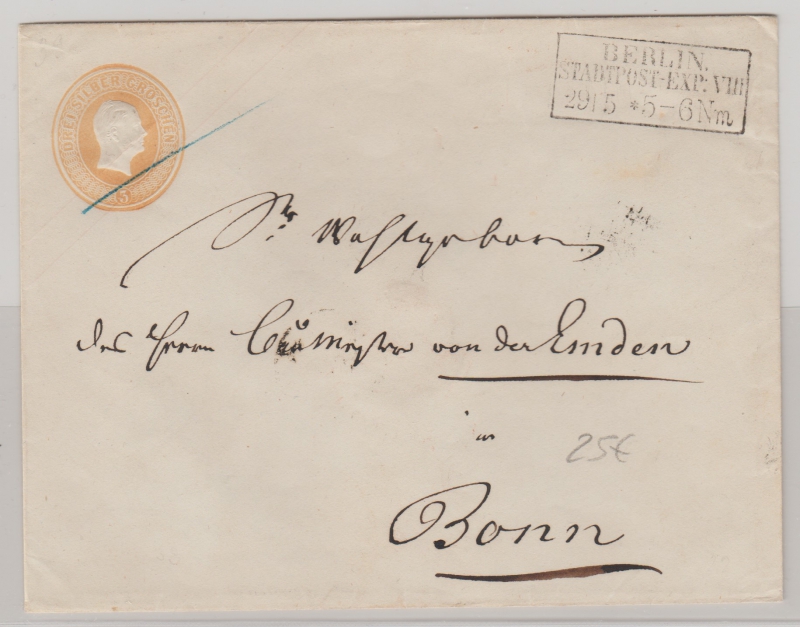 DREI SILBER GROSCHEN
3
BERLIN.
STADTPOST-EXP: VIII
29|5 *5-6 Nm
Sr. Wohlgeboren
des Herrn Baumeister von der Emden
in
Bonn
25€